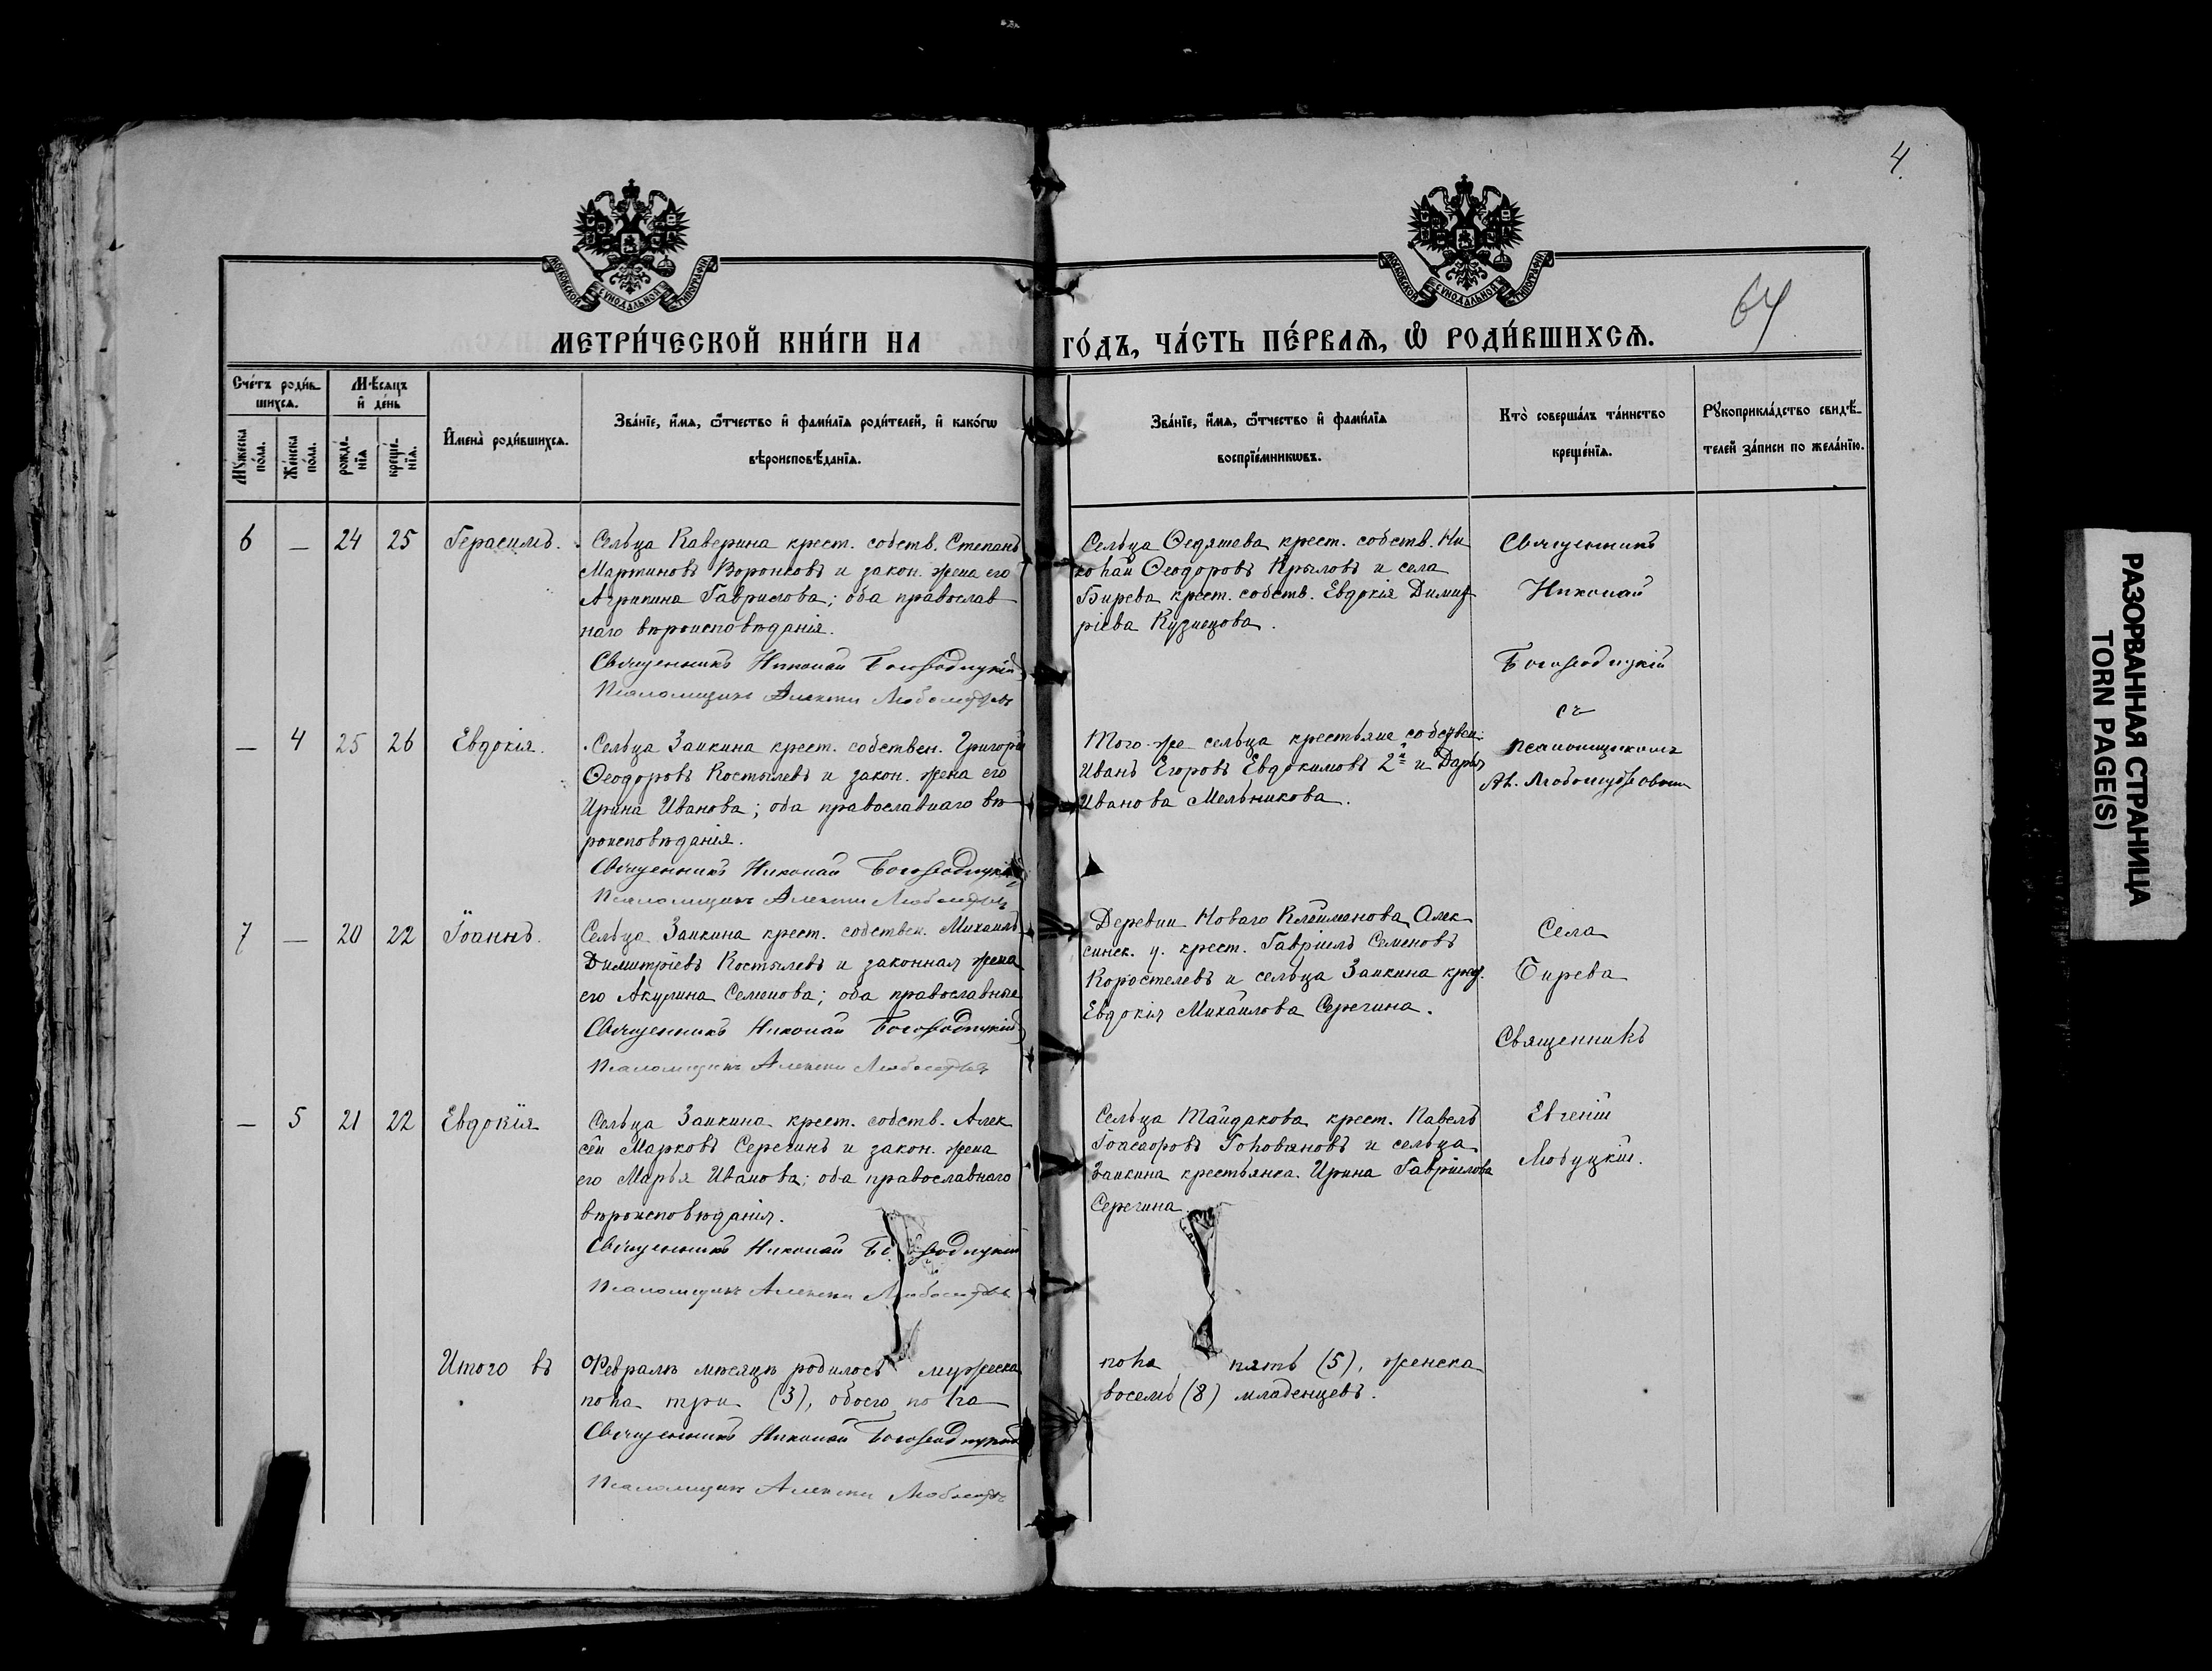 4.
64
МОСКОВСКОЙ СѴНОДАЛЬНОЙ ТИПОГРАФІИ
МОСКОВСКОЙ СѴНОДАЛЬНОЙ ТИПОГРАФІИ
МЕТРИ́ЧЕСКОЙ КНИ́ГИ НА ГО́ДЪ, ЧА́СТЬ ПЕ́РВАѦ, Ѡ РОДИ́ВШИХСѦ.
Сче́тъ роди́вшихсѧ.
Мꙋ́жеска по́ла.
Же́нска по́ла.
Мѣ́сѧцъ и҆ де́нь
рожде́нїѧ
креще́нїѧ.
И҆мена̀ роди́вшихсѧ.
Зва́нїе, и҆́мѧ, ѻ҆́тчество и҆ фами́лїѧ роди́телей, и҆ како́гѡ
вѣроисповѣ́данїѧ.
Зва́нїе, и҆́мѧ, ѻ҆́тчество и҆ фами́лїѧ
воспрїе́мникѡвъ.
Кто̀ соверша́лъ та́инство
креще́нїѧ.
Рꙋкоприкла́дство свидѣ́-
телей за́писи по жела́нїю.
6 — 24 25 Герасимъ.
Сельца Каверина крест. собств. Степанъ
Мартиновъ Воронковъ и закон. жена его
Агрипина Гаврилова; оба православ
наго вѣроисповѣданія.
Священникъ Николай Богородицкій
Псаломщикъ Алексѣй Любомудровъ
Сельца Ѳедяшева крест. собств. Ни
колай Ѳеодоровъ Крыловъ и села
Бирева крест. собств. Евдокія Димит
ріева Кузнецова.
Священникъ
Николай
Богородицкій
съ
псаломщикомъ
Ал. Любомудровымъ
— 4 25 26 Евдокія.
Сельца Заикина крест. собствен. Григорій
Ѳеодоровъ Костылевъ и закон. жена его
Ирина Иванова; оба православнаго вѣ
роисповѣданія.
Священникъ Николай Богородицкій
Псаломщикъ Алексѣй Любомудровъ
Того-же сельца крестьяне собствен.
Иванъ Егоровъ Евдокимовъ 2й и Дарья
Иванова Мельникова.
7 — 20 22 Іоаннъ.
Сельца Заикина крест. собствен. Михаилъ
Димитріевъ Костылевъ и законная жена
его Акулина Семенова; оба православные
Священникъ Николай Богородицкій
Псаломщикъ Алексѣй Любомудровъ
Деревни Новаго Клейменова Алек
синск. у. крест. Гавріилъ Семеновъ
Коростелевъ и сельца Заикина крест.
Евдокія Михаилова Серегина.
Села
Бирева
Священникъ
Евгеній
Любуцкій.
— 5 21 22 Евдокія
Сельца Заикина крест. собств. Алек
сѣй Марковъ Серегинъ и закон. жена
его Марья Иванова; оба православнаго
вѣроисповѣданія.
Священникъ Николай Богородицкій
Псаломщикъ Алексѣй Любомудровъ
Сельца Тайдакова крест. Павелъ
Головановъ и сельца
Заикина крестьянка Ирина Гавріилова
Серегина.
Итого въ Февралѣ мѣсяцѣ родилось мужеска пола пять (5), женска
пола три (3), обоего пола восемь (8) младенцевъ.
Священникъ Николай Богородицкій
Псаломщикъ Алексѣй Любомудровъ
РАЗОРВАННАЯ СТРАНИЦА
TORN PAGE(S)